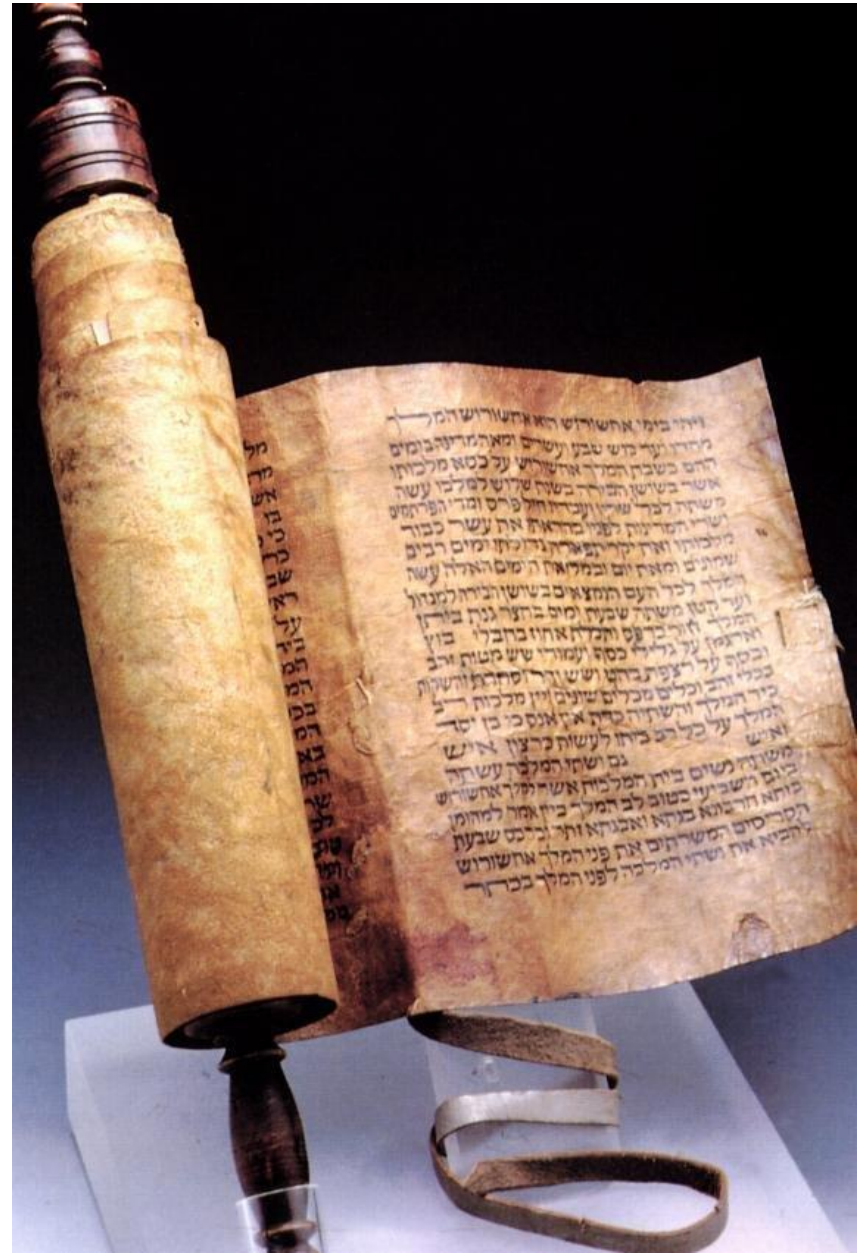 ויהי בימי אחשורוש הוא אחשורוש המלך
מהודו ועד כוש שבע ועשרים ומאה מדינה בימים
ההם כשבת המלך אחשורוש על כסא מלכותו
אשר בשושן הבירה בשנת שלוש למלכו עשה
משתה לכל שריו ועבדיו חיל פרס ומדי הפרתמים
ושרי המדינות לפניו בהראתו את עשר כבוד
מלכותו ואת יקר תפארת גדולתו ימים רבים
שמונים ומאת יום ובמלואת הימים האלה עשה
המלך לכל העם הנמצאים בשושן הבירה למגדול
ועד קטן משתה שבעת ימים בחצר גנת ביתן
המלך חור כרפס ותכלת אחוז בחבלי בוץ
וארגמן על גלילי כסף ועמודי שש מטות זהב
וכסף על רצפת בהט ושש ודר וסחרת והשקות
בכלי זהב וכלים מכלים שונים ויין מלכות רב
כיד המלך והשתיה כדת אין אנס כי כן יסד
המלך על כל רב ביתו לעשות כרצון איש
ואיש גם ושתי המלכה עשתה
משתה נשים בית המלכות אשר למלך אחשורוש
ביום השביעי כטוב לב המלך ביין אמר למהומן
בזתא חרבונא בגתא ואבגתא זתר וכרכס שבעת
הסריסים המשרתים את פני המלך אחשורוש
להביא את ושתי המלכה לפני המלך בכתר